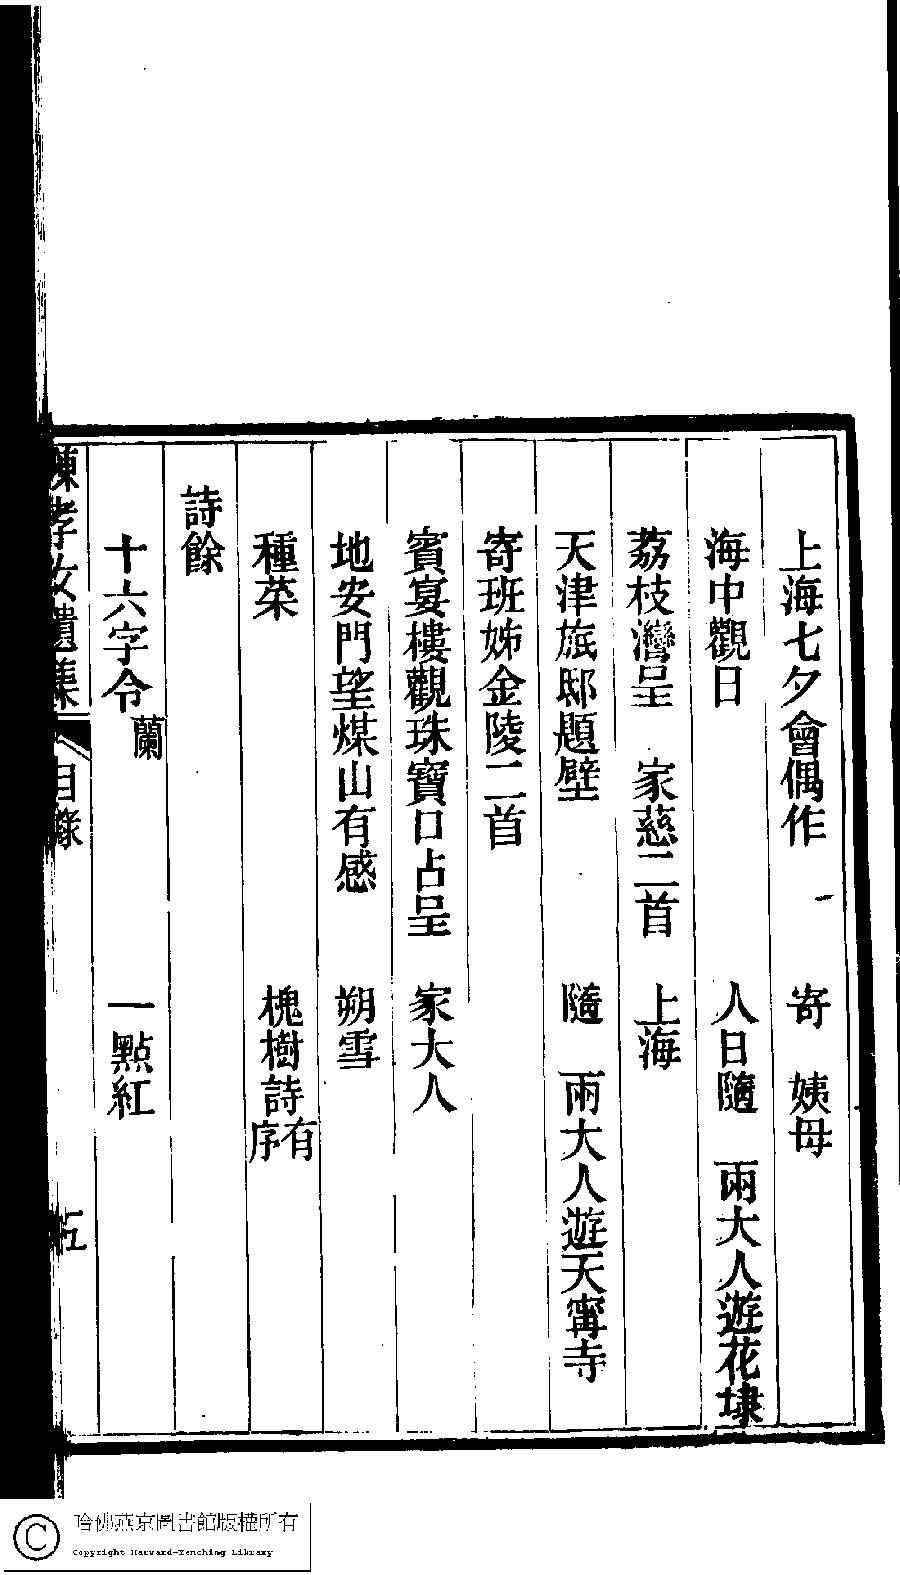 上海七夕會偶作　寄　姨母
海中觀日　人日隨　兩大人遊花埭
荔枝灣呈　家慈二首　上海
天津旅邸題壁　隨　兩大人遊天甯寺
寄班姊金陵二首
賓宴樓觀珠寶口占呈　家大人
地安門望煤山有感　朔雪
種菜　槐樹詩有序
詩餘
十六字令蘭　一點紅
陳孝女遺集　目錄　五
哈佛燕京圖書館版權所有
Copyright Harvard-Yenching Library